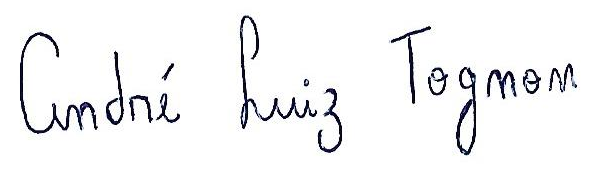 André Luiz Tognon